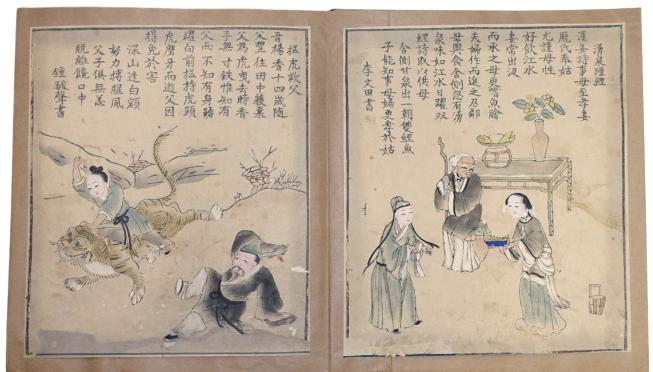 湧泉躍鯉
漢姜詩事母至孝妻
龐氏奉姑
尤謹母性
好飲江水
妻常出汲
而奉之母更嗜魚膾
夫婦作而進之召鄰
母與食舍側忽有湧
泉味如江水日躍双
鯉詩取以供母
舍側甘泉出一朝雙鯉魚
子能知事母婦更孝於姑
李文田書
搤虎救父
晉楊香十四歲隨
父豐往田中穫粟
父為虎曳去時香
手無寸鉄惟知有
父而不知有身踴
躍向前搤持虎頸
虎磨牙而逝父因
得免於害
深山逢白額
努力搏腥風
父子俱無恙
脫離饞口中
鍾駿聲書